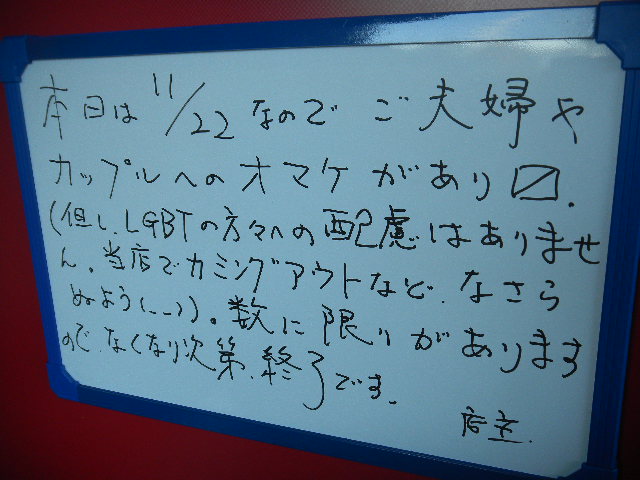 本日は11/22なのでご夫婦や
カップルへのオマケがあり〼.
(但し、LGBTの方々への配慮はありませ
ん。当店でカミングアウトなど、なさら
ぬよう(--))。数に限りがあります
ので、なくなり次第、終了です。
店主.